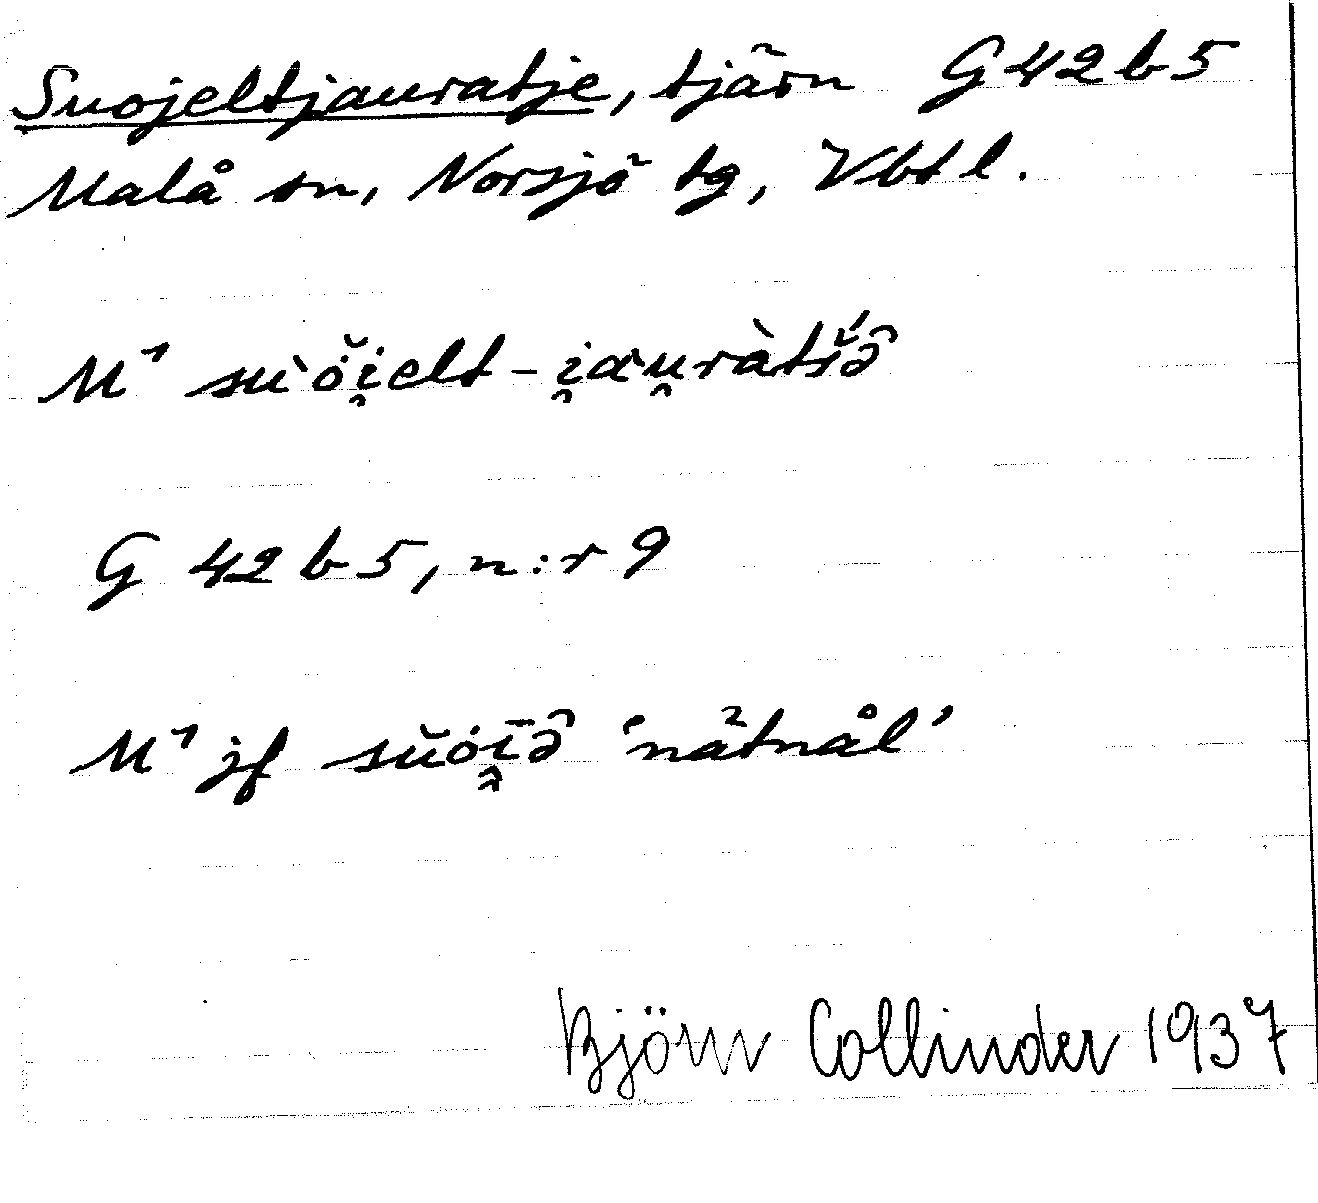 Suojeltjauratje, tjärn G42b5
Malå sn, Norsjö tg, Vbtl.
M¹ sùŏi̯elt-i̯au̯ràtíə̑
G 42 b 5, n:r 9
M¹ jf sŭȯī̯ə̑ 'nätnål'
Björn Collinder 1937